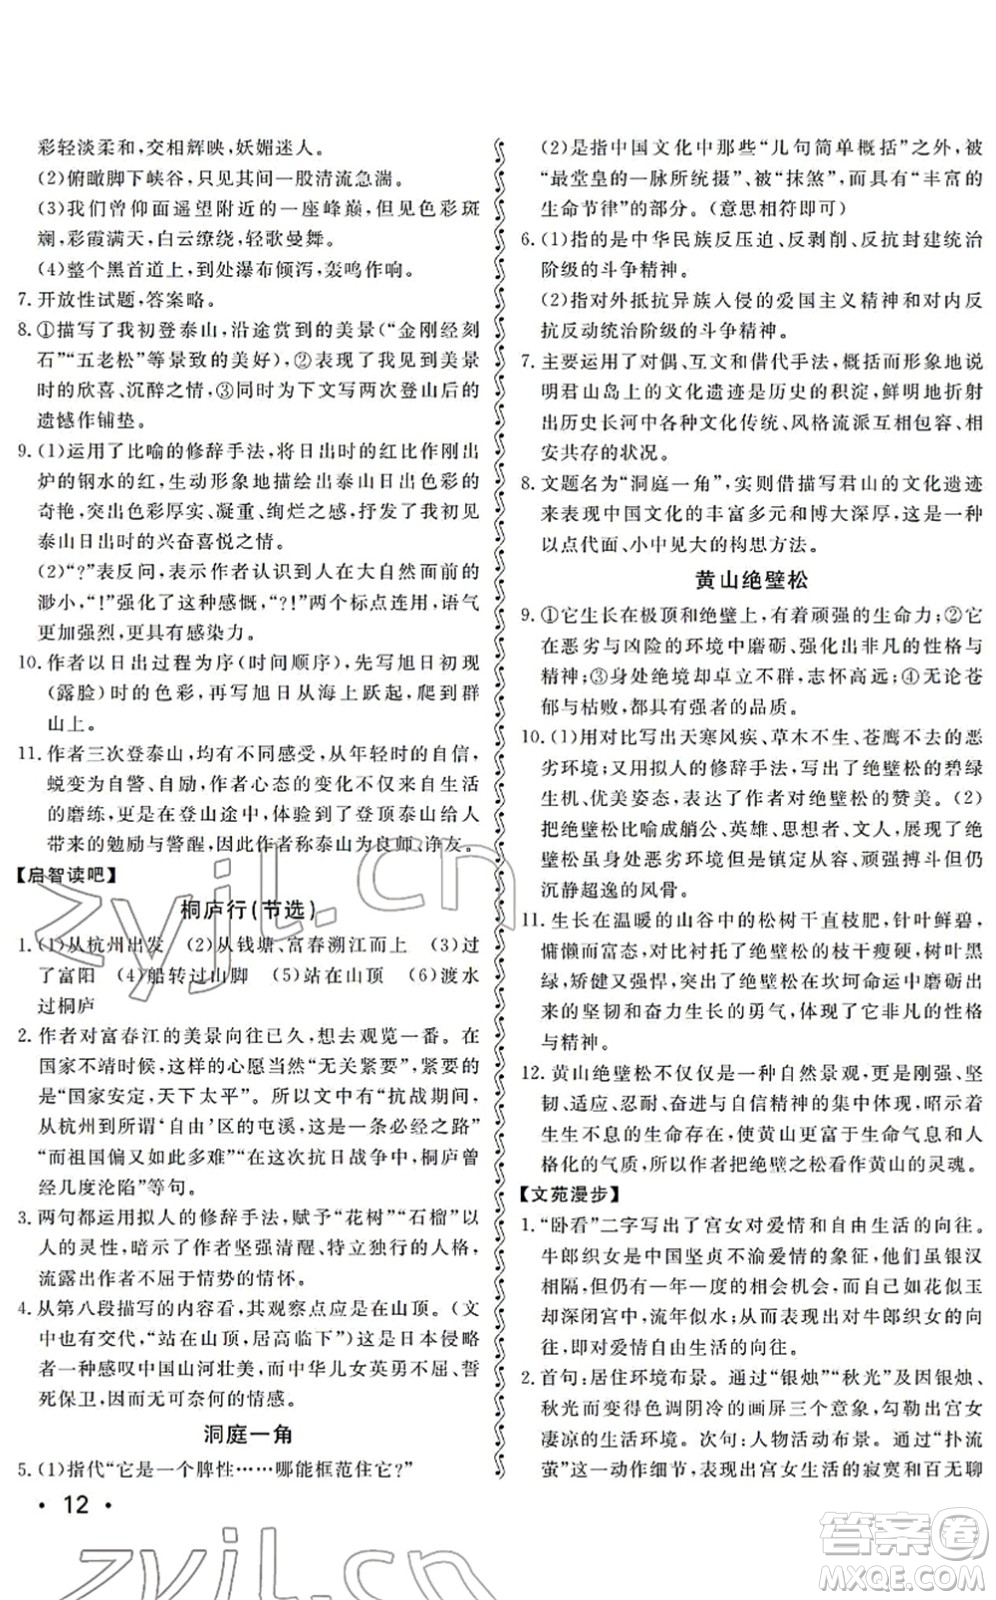 彩轻淡柔和,交相辉映,妖媚迷人。
(2)俯瞰脚下峡谷,只见其间一股清流急湍。
(3)我们曾仰面遥望附近的一座峰巅,但见色彩斑
斓,彩霞满天,白云缭绕,轻歌曼舞。
(4)整个黑首道上,到处瀑布倾泻,轰鸣作响。
7. 开放性试题,答案略。
8. ①描写了我初登泰山,沿途赏到的美景(“金刚经刻
石”“五老松”等景致的美好),②表现了我看到美景
时的欣喜、沉醉之情,③同时为下文写两次登山后的
遗憾作铺垫。
9. (1)运用了比喻的修辞手法,将日出时的红比作刚出
炉的钢水的红,生动形象地描绘出泰山日出色彩的
奇艳,突出色彩厚实、凝重、绚烂之感,抒发了我初见
泰山日出时的兴奋喜悦之情。
(2)“?”表反问,表示作者认识到人在大自然面前的
渺小,“!”强化了这种感慨,“?!”两个标点连用,语气
更加强烈,更具有感染力。
10. 作者以日出过程为序(时间顺序),先写旭日初现
(露脸)时的色彩,再写旭日从海上跃起,爬到群
山上。
11. 作者三次登泰山,均有不同感受,从年轻时的自信,
蜕变为自警、自励,作者心态的变化不仅来自生活
的磨练,更是在登山途中,体验到了登顶泰山给人
带来的勉励与警醒,因此作者称泰山为良师、诤友。
【启智读吧】
桐庐行(节选)
1. (1)从杭州出发 (2)从钱塘、富春溯江而上 (3)过
了富阳 (4)船转过山脚 (5)站在山顶 (6)渡水
过桐庐
2. 作者对富春江的美景向往已久,想去观览一番。在
国家不靖时候,这样的心愿当然“无关紧要”,紧要的
是“国家安定,天下太平”。所以文中有“抗战期间,
从杭州到所谓‘自由’区的屯溪,这是一条必经之路”
“而祖国偏又如此多难”“在这次抗日战争中,桐庐曾
经几度沦陷”等句。
3. 两句都运用拟人的修辞手法,赋予“花树”“石榴”以
人的灵性,暗示了作者坚强清醒、特立独行的人格,
流露出作者不屈于情势的情怀。
4. 从第八段描写的内容看,其观察点应是在山顶。(文
中也有交代,“站在山顶,居高临下”)这是日本侵略
者一种感叹中国山河壮美、而中华儿女英勇不屈、誓
死保卫,因而无可奈何的情感。
洞庭一角
5. (1)指代“它是一个脾性……哪能框范住它?”
· 12 ·
(2)是指中国文化中那些“几句简单概括”之外的,
被“最堂皇的一脉所统摄”、被“抹煞”,而具有“丰富的
生命节律”的部分。(意思相符即可)
6. (1)指的是中华民族反压迫、反剥削、反抗封建统治
阶级的斗争精神。
(2)指对外抵抗异族入侵的爱国主义精神和对内反
抗反动统治阶级的斗争精神。
7. 主要运用了对偶、互文和借代手法,概括而形象地说
明君山岛上的文化遗迹是历史的积淀,鲜明地折射
出历史长河中各种文化传统、风格流派互相包容、相
安共存的状况。
8. 文题名为“洞庭一角”,实则借描写君山的文化遗迹
来探求中国文化的丰富多元和博大深厚,这是一种
以点代面、小中见大的构思方法。
黄山绝壁松
9. ①它生长在极顶和绝壁上,有着顽强的生命力;②它
在恶劣与凶险的环境中磨砺、强化出非凡的性格与
精神;③身处绝境却卓立不群,志怀高远;④无论苍
郁与枯败,都具有强者的品质。
10. (1)用对比写出天寒风疾、草木不生、苍鹰不停的恶
劣环境;又用拟人的修辞手法,写出了绝壁松的碧绿
生机、优美姿态,表达了作者对绝壁松的赞美。(2)
把绝壁松比喻成艄公、英雄、思想者、文人,展现了绝
壁松虽处恶劣环境但镇定从容、顽强搏斗但心灵
沉静超逸的风骨。
11. 生长在温暖的山谷中的松树干直枝肥,针叶鲜碧,
慵懒而富态,对比突出了绝壁松的枝干瘦硬,树叶黑
绿,矫健又强悍,突出了绝壁松在坎坷命运中磨砺出来
的坚韧和奋力生长的勇气,体现了它非凡的性格与
精神。
12. 黄山绝壁松不仅仅是一种自然景观,更是顽强、坚
韧、适应、忍耐、奋进与自信精神的集中体现,昭示着
生生不息的生命存在,使黄山更富于生命气息和人
格化的气质,所以作者把绝壁之松看作黄山的灵魂。
【文苑漫步】
1. “卧看”二字写出了宫女对爱情和自由生活的向往。
牛郎织女是中国坚贞不渝爱情的象征,他们虽银汉
相隔,但仍有一年一度的相会之期,自己如花似玉
却深闭宫中,流年似水;突出了她对牛郎织女的向
往,即对爱情与自由生活的向往。
2. 首句:居住环境布景。通过“银烛”“秋光”及因银烛、
秋光而变得色调阴冷的画屏三个意象,勾勒出宫女
凄凉的生活环境。次句:人物活动布景。通过“扑流
萤”这一动作细节,表现出宫女生活的寂寞和百无聊
zyjl.cn
zyjl.cn
答案圈
MXQE.COM